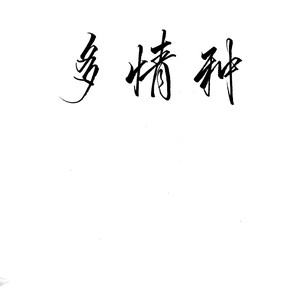 多情种